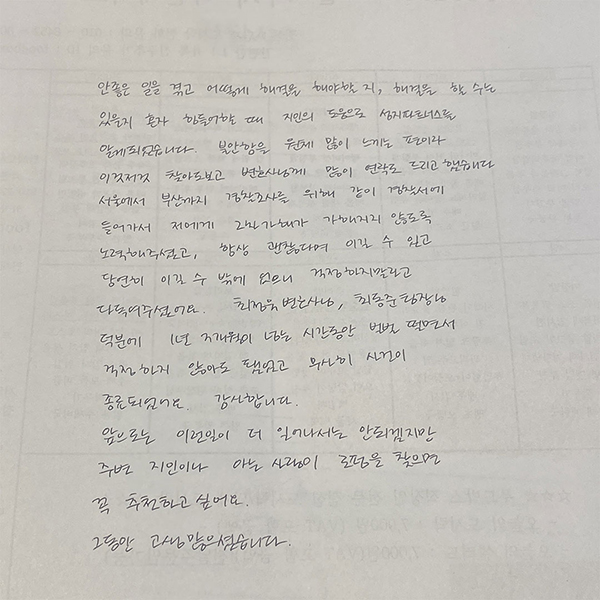 안좋은 일을 겪고 어떻게 해결을 해야할 지, 해결을 할 수는
있을지 혼자 힘들어할 때 지인의 도움으로 심지파트너스를
알게되었습니다. 불안함을 원체 많이 느끼는 편이라
이것저것 찾아도보고 변호사님께 많이 연락도 드리고 했습니다
서울에서 부산까지 경찰조사를 위해 같이 경찰서에
들어가서 저에게 2차가해가 가해지지 않도록
노력해주셨고, 항상 괜찮다며 이길 수 있고
당연히 이길 수 밖에 없으니 걱정하지말라고
다독여주셨어요. 최정욱변호사님, 최동준팀장님
덕분에 1년 7개월이 넘는 시간동안 벌벌 떨면서
걱정하지 않아도 됐었고 무사히 사건이
종료되었어요. 감사합니다.
앞으로는 이런일이 더 일어나서는 안되겠지만
주변 지인이나 아는 사람이 로펌을 찾으면
꼭 추천하고 싶어요.
그동안 고생많으셨습니다.